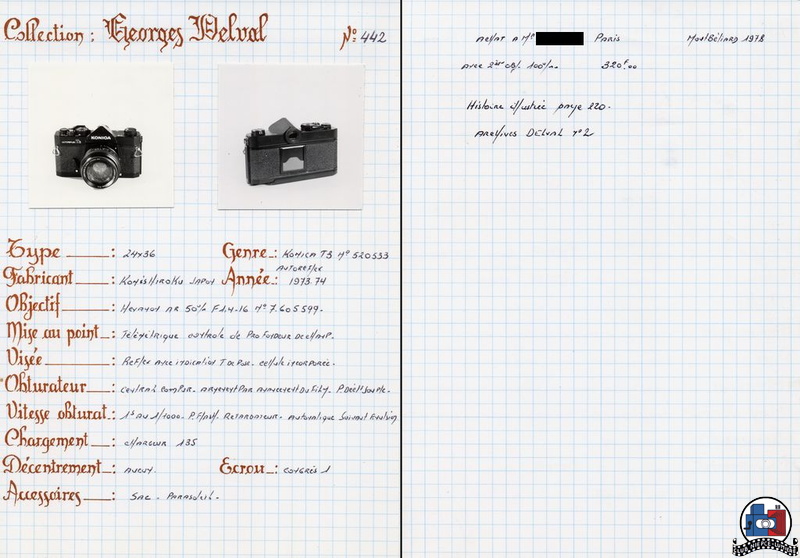 Collection : Georges Delval
№ 442
KONICA
Type : 24x36
Genre : Konica T3 N° 520533
Autoreflex
Fabricant : Konishiroku Japon
Année : 1973.74
Objectif : Hexanon AR 50% F1.4-16 N° 7.605599.
Mise au point : Télémétrique contrôle de Profondeur de champ.
Visée : Reflex avec indication T de Pose. cellule incorporée.
Obturateur : central Compur. armement Par avancement du film. P. Souple.
Vitesse obturat. : 1s au 1/1000. P. Flash. Retardateur. Automatique Suivant
Chargement : chargeur 135
Décentrement : aucun.
Ecrou : congrès 1
Accessoires : Sac - Parasoleil.
Achat à Mr Paris Montbéliard 1978
Avec 2ème obj. 320F.00
Histoire illustrée page 220.
Archives Delval n°2